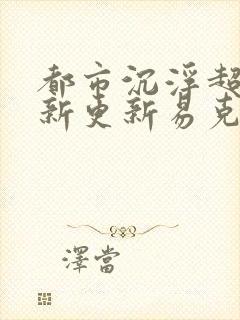 都市沉浮超
新更新易克
澤當